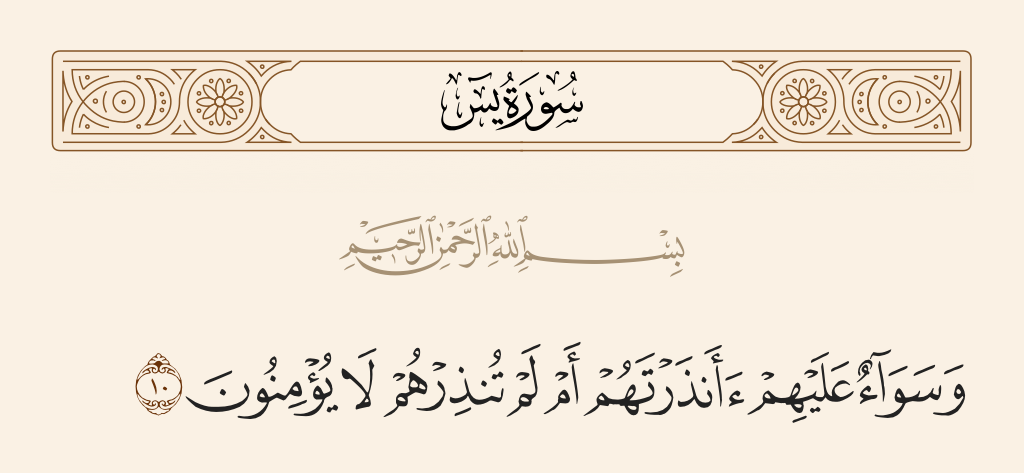 سُورَةُ يسٓ
بِسْمِ ٱللَّهِ ٱلرَّحْمَٰنِ ٱلرَّحِيمِ
وَسَوَآءٌ عَلَيْهِمْ ءَأَنذَرْتَهُمْ أَمْ لَمْ تُنذِرْهُمْ لَا يُؤْمِنُونَ ١٠